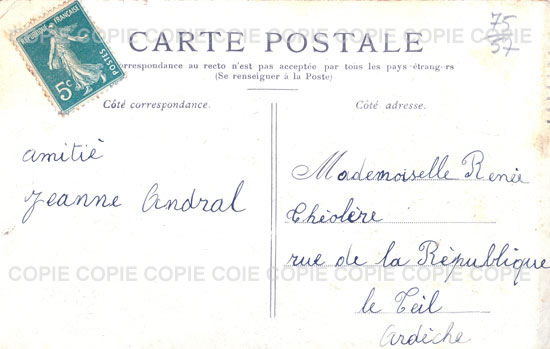 RÉPUBLIQUE FRANÇAISE
POSTES
5c
75
57
CARTE POSTALE
correspondance au recto n'est pas acceptée par tous les pays étrangers
(Se renseigner à la Poste)
Côté correspondance.
Côté adresse.
amitiè
Jeanne Andral
Mademoiselle Renée
Chéolère
rue de la Rèpublique
le Teil
Ardèche
COPIE COPIE COPIE COPIE COIE COPIE COPIE COPIE COPIE